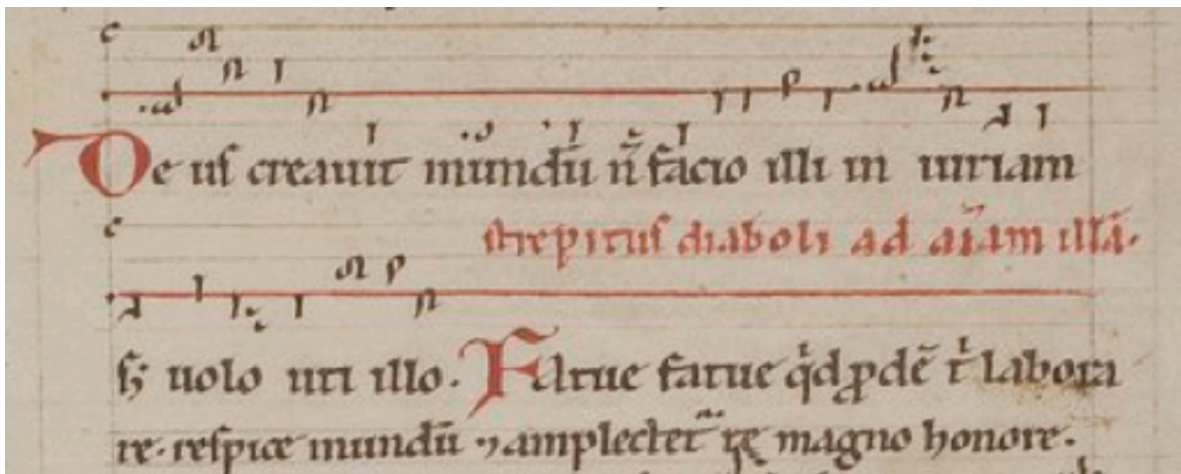 Deus creauit mundū n̄ facio illi in iuriam
strepitus diaboli ad aīam illā.
sꝫ uolo uti illo. Fatue fatue qͥd ꝓdē tͥ labora
re. respice mundū ⁊ amplectet᷑ te magno honore.